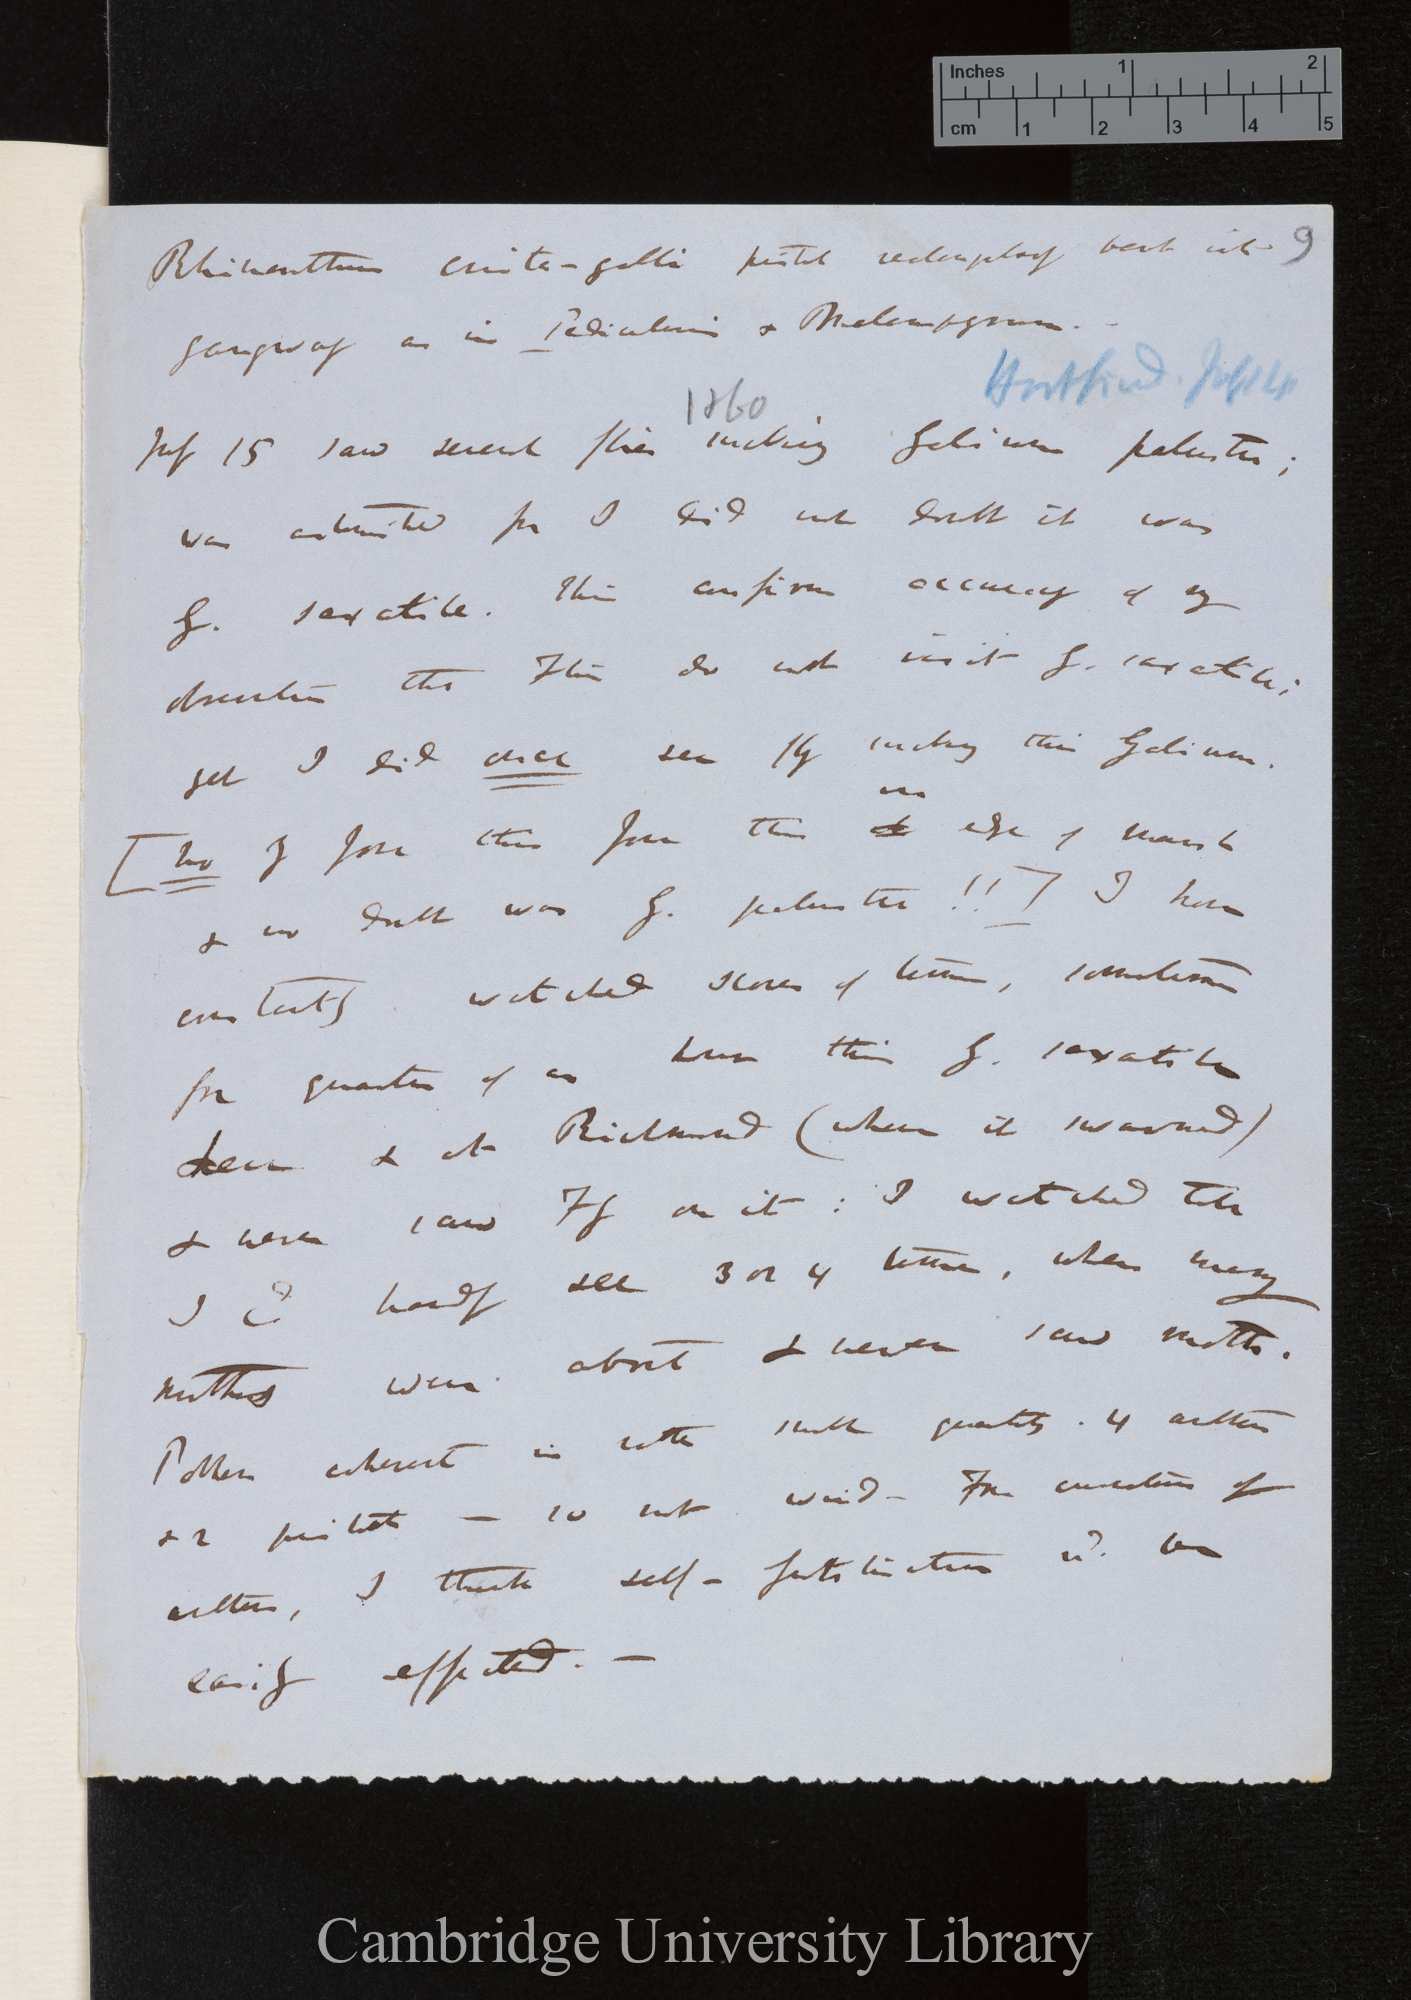 Inches 1 2
cm 1 2 3 4 5
9
Rhinanthus crista-galli pistil rectangularly bent into
gangway as in Pedicularis & Melampyrum.-
Hartfield. July 14
1860
July 15 saw several flies sucking Galium palustre;
was astonished for I did not doubt it was
G. saxatile. This confirms accuracy of my
observation that Flies do not visit G. saxatile;
yet I did once see fly sucking this Galium.
[No I found this from this on edge of marsh
& no doubt was G. palustre!!] I have
constantly watched scores of times, sometimes
for quarter of an hour this G. saxatile
here & at Richmond (where it swarmed)
& never saw Fly on it: I watched till
I cd hardly see 3 or 4 times, when many
moths were about & never saw moth.
Pollen coherent in rather small quantity. 4 anthers
& 2 pistils — so not wind- From curvature of
anthers, I think self-fertilisation wd. be
easily effected. —
Cambridge University Library